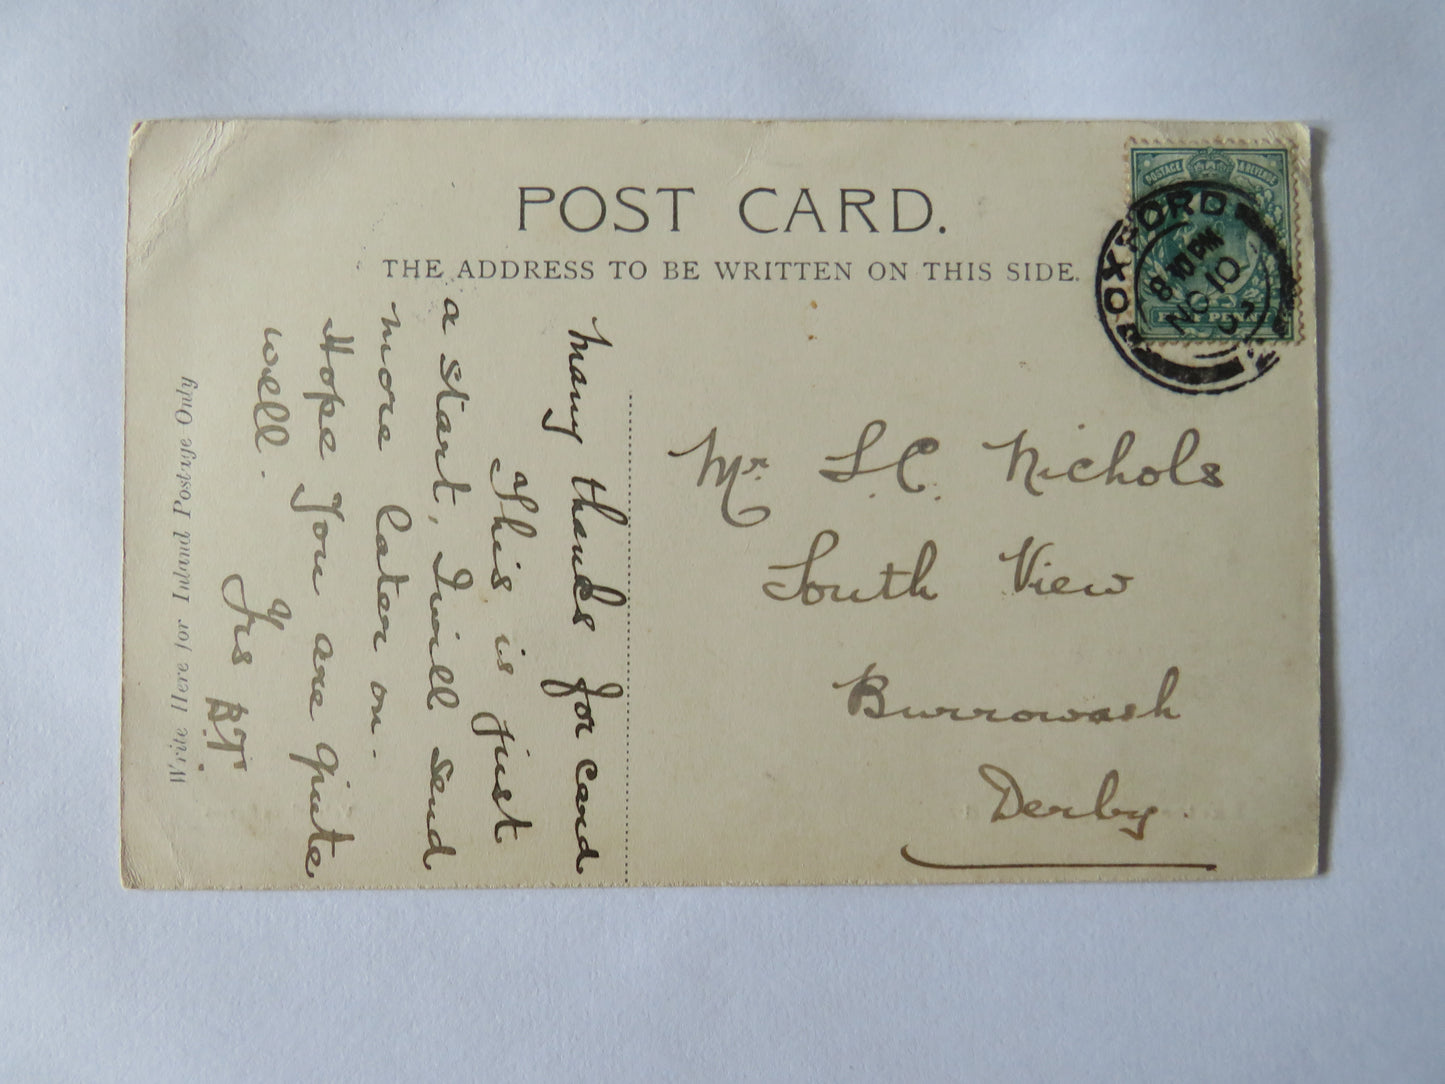 POST CARD.
THE ADDRESS TO BE WRITTEN ON THIS SIDE.
POSTAGE & REVENUE
HALF PENNY
OXFORD
8.10 PM
NO 10
Many thanks for card
This is just
a start, I will send
more later on.
Hope you are quite
well.
Yrs B.T.
Write Here for Inland Postage Only
Mr L.C. Nichols
South View
Burrowash
Derby.